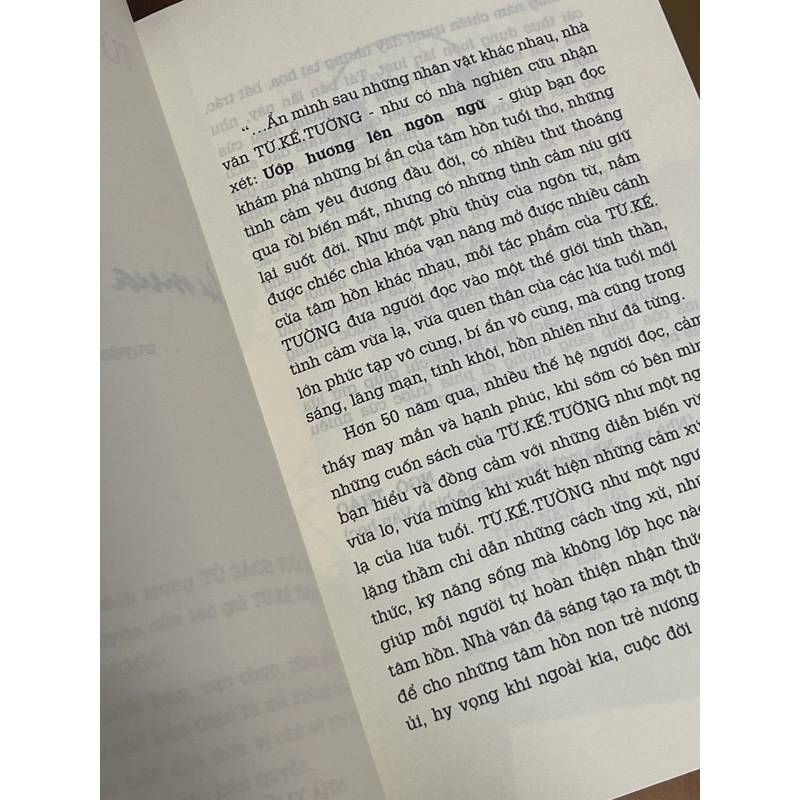 "...Ẩn mình sau những nhân vật khác nhau, nhà
văn TỪ.KẾ.TƯỜNG - như có nhà nghiên cứu nhận
xét: Ướp hương lên ngôn ngữ - giúp bạn đọc
khám phá những bí ẩn của tâm hồn tuổi thơ, những
tình cảm yêu đương đầu đời, có nhiều thứ thoáng
qua rồi biến mất, nhưng có những tình cảm níu giữ
lại suốt đời. Như một phù thủy của ngôn từ, nắm
được chiếc chìa khóa vạn năng mở được nhiều cánh
cửa tâm hồn khác nhau, mỗi tác phẩm của TỪ.KẾ.
TƯỜNG đưa người đọc vào một thế giới tinh thần,
tình cảm vừa lạ, vừa quen thân của các lứa tuổi mới
lớn phức tạp vô cùng, bí ẩn vô cùng, mà cũng trong
sáng, lãng mạn, tinh khôi, hồn nhiên như đã từng.
Hơn 50 năm qua, nhiều thế hệ người đọc, cảm
thấy may mắn và hạnh phúc, khi sớm có bên mìn
những cuốn sách của TỪ.KẾ.TƯỜNG như một ng
bạn hiểu và đồng cảm với những diễn biến vừ
vừa lo, vừa mừng khi xuất hiện những cảm xú
lạ của lứa tuổi. TỪ.KẾ.TƯỜNG như một ngư
lặng thầm chỉ dẫn những cách ứng xử, nhữ
thức, kỹ năng sống mà không lớp học nào
giúp mỗi người tự hoàn thiện nhận thức
tâm hồn. Nhà văn đã sáng tạo ra một th
để cho những tâm hồn non trẻ nương
ủi, hy vọng khi ngoài kia, cuộc đời